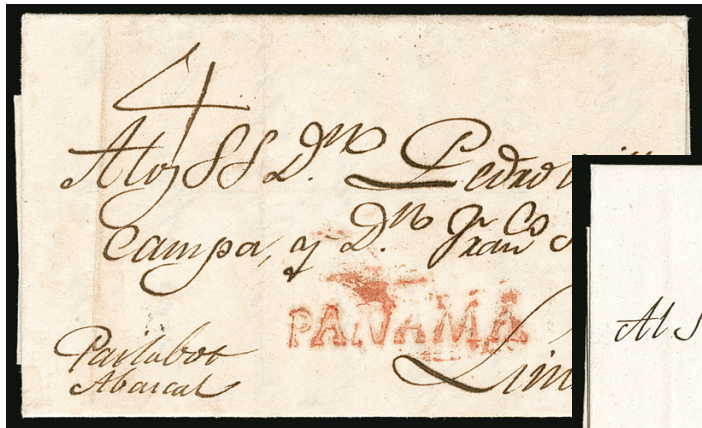 4
A los SS D.ⁿ Pedro
Campa, y D.ⁿ Fran.co
PANAMA
Pailabot
Abascal
Lim
Al S